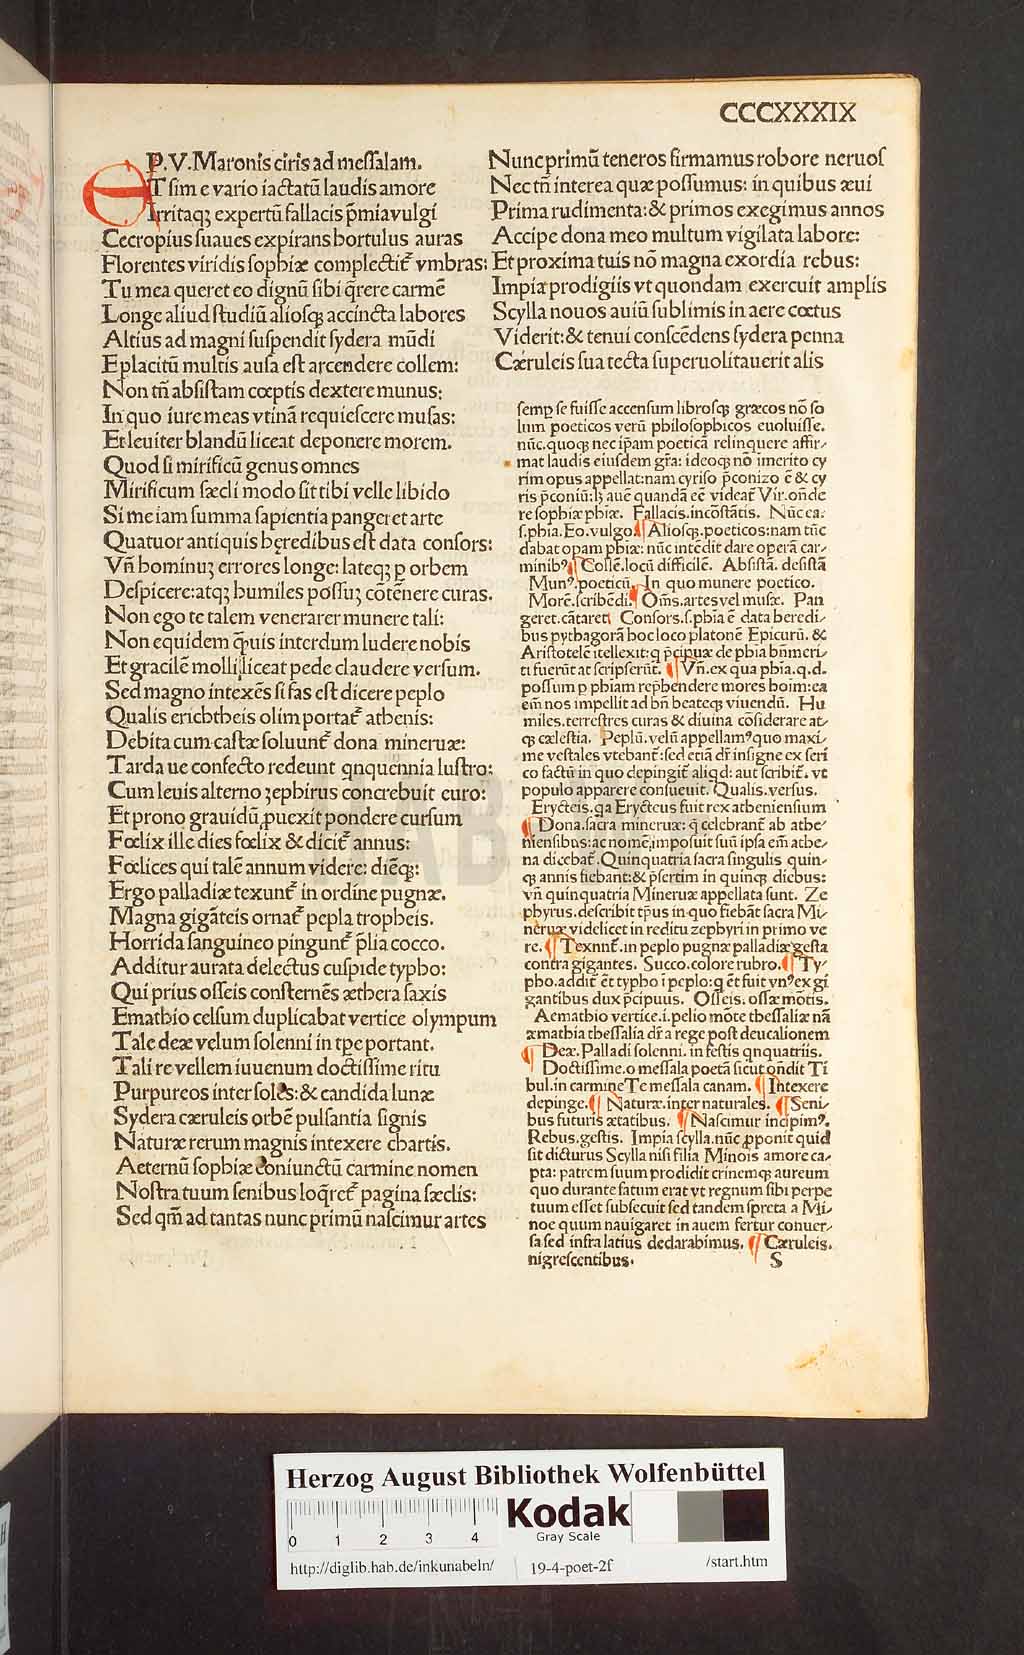 CCCXXXIX
P.V.Maronis ciris ad meſſalam.
ETſim e vario iactatũ laudis amore
Irritaqȝ expertũ fallacis p̃mia vulgi
Cecropius ſuaues expirans hortulus auras
Florentes viridis ſophiæ complectit᷑ vmbras:
Tu mea queret eo dignũ ſibi q̃rere carmẽ
Longe aliud ſtudiũ alioſqȝ accincta labores
Altius ad magni ſuſpendit ſydera mũdi
Eplacitũ multis auſa eſt arcendere collem:
Non tñ abſiſtam cœptis dextere munus:
In quo iure meas vtinã requieſcere muſas:
Et leuiter blandũ liceat deponere morem.
Quod ſi mirificũ genus omnes
Mirificum ſæcli modo ſit tibi velle libido
Si me iam ſumma ſapientia pangeret arte
Quatuor antiquis hęredibus eſt data conſors:
Vñ hominuȝ errores longe: lateqȝ p orbem
Deſpicere: atqȝ humiles poſſuȝ cõtẽnere curas.
Non ego te talem venerarer munere tali:
Non equidem q̃uis interdum ludere nobis
Et gracilẽ molli liceat pede claudere verſum.
Sed magno intexẽs ſi fas eſt dicere peplo
Qualis erichtheis olim portat᷑ athenis:
Debita cum caſtæ ſoluunt᷑ dona mineruæ:
Tarda ue confecto redeunt qnquennia luſtro:
Cum leuis alterno ȝephirus concrebuit euro:
Et prono grauidũ ꝓuexit pondere curſum
Fœlix ille dies fœlix & dicit᷑ annus:
Fœlices qui talẽ annum videre: diẽqȝ:
Ergo palladiæ texunt᷑ in ordine pugnæ.
Magna gigãteis ornat᷑ pepla tropheis.
Horrida ſanguineo pingunt᷑ p̃lia cocco.
Additur aurata delectus cuſpide typho:
Qui prius oſſeis conſternẽs æthera ſaxis
Emathio celſum duplicabat vertice olympum
Tale deæ velum ſolenni in tp̃e portant.
Tali re vellem iuuenum doctiſſime ritu
Purpureos inter ſoles: & candida lunæ
Sydera cæruleis orbẽ pulſantia ſignis
Naturæ rerum magnis intexere chartis.
Aeternũ ſophiæ coniunctũ carmine nomen
Noſtra tuum ſenibus loq̃ret᷑ pagina ſæclis:
Sed qm̃ ad tantas nunc primũ naſcimur artes
Nunc primũ teneros firmamus robore neruoſ
Nec tñ interea quæ poſſumus: in quibus æui
Prima rudimenta: & primos exegimus annos
Accipe dona meo multum vigilata labore:
Et proxima tuis nõ magna exordia rebus:
Impia prodigiis vt quondam exercuit amplis
Scylla nouos auiũ ſublimis in aere cœtus
Viderit: & tenui conſcẽdens ſydera penna
Cæruleis ſua tecta ſuperuolitauerit alis
ſemp̱ ſe fuiſſe accenſum libroſqȝ græcos nõ ſo
lum poeticos verũ philoſophicos euoluiſſe.
nũc. quoqȝ nec ip̃am poeticã relinquere affir⸗
mat laudis eiuſdem gr̃a: ideoqȝ nõ imerito cy
rim opus appellat: nam cyriſo p̃conizo ẽ & cy
ris p̃coniũ: lȝ auẽ quandã eẽ videat᷑ Vir. oñde
re ſophiæ phiæ. Fallacis. incõſtãtis. Nũc ea.
ſ. phia. Eo. vulgo. ¶ Alioſqȝ. poeticos: nam tũc
dabat opam phiæ: nũc intẽdit dare operã car⸗
minibꝰ ¶ Collẽ. locũ difficilẽ. Abſiſtã. deſiſtã
Munꝰ. poeticũ. In quo munere poetico.
Morẽ. ſcribẽdi. ¶ Om̃s. artes vel muſæ. Pan
geret. cãtaret ¶ Conſors. ſ. phia ẽ data heredi⸗
bus pythagorã hoc loco platonẽ Epicurũ. &
Ariſtotelẽ itellexit: q p̃cipuæ de phia bñmeri⸗
ti fuerũt at ſcripſerũt. ¶ Vñ. ex qua phia. q. d.
poſſum p phiam rep̃hendere mores hoim: ea
em̃ nos impellit ad bñ beateqȝ viuendũ. Hu
miles. terreſtres curas & diuina cõſiderare at⸗
qȝ cæleſtia. Peplũ. velũ appellamꝰ quo maxi⸗
me veſtales vtebant᷑: ſed etiã dr̃ inſigne ex ſeri
co factũ in quo depingit᷑ aliqd: aut ſcribit᷑. vt
populo apparere conſueuit. Qualis. verſus.
Erycteis. qa Erycteus fuit rex athenienſium
¶ Dona. ſacra mineruæ: q̃ celebrant᷑ ab athe⸗
nienſibus: ac nomẽ, impoſuit ſuũ ipſa em̃ athe⸗
na dicebat᷑. Quinquatria ſacra ſingulis quin⸗
qȝ annis fiebant: & p̃ſertim in quinqȝ diebus:
vñ quinquatria Mineruæ appellata ſunt. Ze
phyrus. deſcribit tp̃us in quo fiebãt ſacra Mi⸗
neruæ videlicet in reditu zephyri in primo ve
re. ¶ Texunt᷑. in peplo pugnæ palladiæ geſta
contra gigantes. Succo. colore rubro. ¶ Ty⸗
pho. addit᷑ ẽt typho i peplo: q ẽt fuit vnꝰ ex gi
gantibus dux p̃cipuus. Oſſeis. oſſæ mõtis.
Aemathio vertice. i. pelio mõte theſſaliæ nã
æmathia theſſalia dr̃ a rege poſt deucalionem
¶ Deæ. Palladi ſolenni. in feſtis qnquatriis.
Doctiſſime. o meſſala poetã ſicut oñdit Ti
bul. in carmine Te meſſala canam. ¶ Intexere
depinge. ¶ Naturæ. inter naturales. ¶ Seni⸗
bus futuris ætatibus. ¶ Naſcimur incipimꝰ.
Rebus. geſtis. Impia ſcylla. nũc ꝓponit quid
ſit dicturus Scylla niſi filia Minois amore ca⸗
pta: patrem ſuum prodidit crinemqȝ aureum
quo durante fatum erat vt regnum ſibi perpe
tuum eſſet ſubſecuit ſed tandem ſpreta a Mi⸗
noe quum nauigaret in auem fertur conuer⸗
ſa ſed infra latius declarabimus. ¶ Cæruleis.
nigreſcentibus.
S
HAB
Herzog August Bibliothek Wolfenbüttel
0 1 2 3 4
Kodak
Gray Scale
http://diglib.hab.de/inkunabeln/ 19-4-poet-2f /start.htm